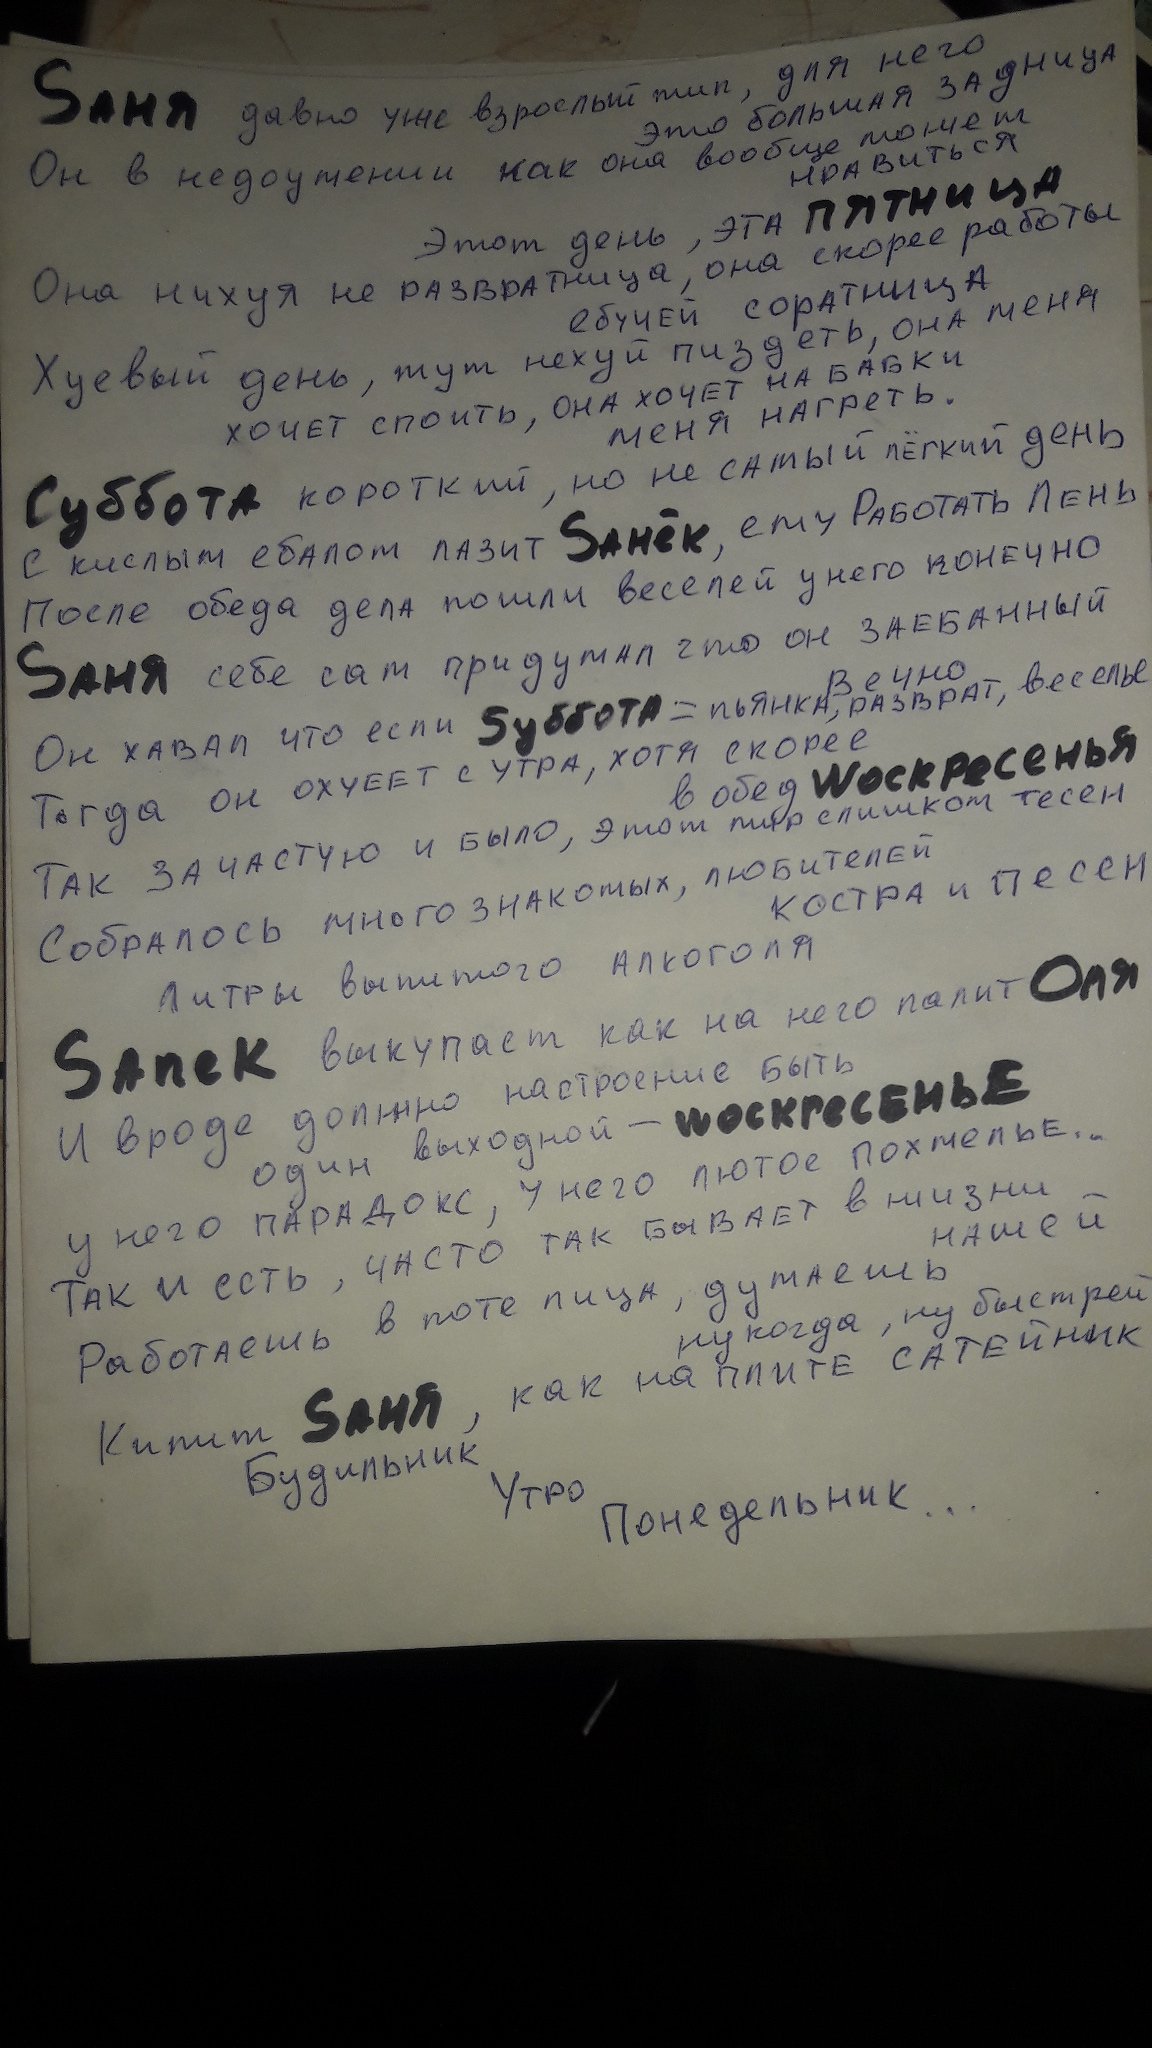 Sаня давно уже взрослый тип, для него
это большая задница
Он в недоумении как она вообще может
нравиться
Этот день, эта пятница
Она нихуя не развратница, она скорее работы
ебучей соратница
Хуевый день, тут нехуй пиздеть, она меня
хочет споить, она хочет на бабки
меня нагреть.
Суббота короткий, но не самый лёгкий день
С кислым ебалом лазит Sанёк, ему работать лень
После обеда дела пошли веселей у него конечно
Sаня себе сам придумал что он заебанный
вечно
Он хавал что если Sуббота = пьянка, разврат, веселье
Тогда он охуеет с утра, хотя скорее
в обед Wоскресенья
Так зачастую и было, этот мир слишком тесен
Собралось много знакомых, любителей
костра и песен
Литры выпитого алкоголя
Sапек выкупает как на него палит Оля
И вроде должно настроение быть
один выходной – Wоскресенье
у него парадокс, у него лютое похмелье...
Так и есть, часто так бывает в жизни
нашей
Работаешь в поте лица, думаешь
ну когда, ну быстрей
Кипит Sаня, как на плите сатейник
Будильник
Утро
Понедельник...